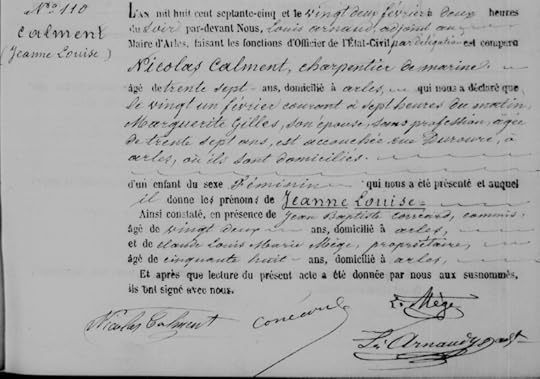 N° 110
Calment
(Jeanne Louise)
L'AN mil huit cent septante-cinq et le vingt deux février à deux heures
du Soir par-devant Nous, Louis Arnaud, adjoint au
Maire d'Arles, faisant les fonctions d'Officier de l'État-Civil par délégation est comparu
Nicolas Calment, charpentier de marine
âgé de trente sept ans, domicilié à arles, qui nous a déclaré que
le vingt un février courant à sept heures du matin,
Marguerite Gilles, son épouse, sans profession, agée
de trente sept ans, est accouchée rue Duroure, à
arles, où ils sont domiciliés.
d'un enfant du sexe Féminin qui nous a été présenté et auquel
il donne les prénoms de Jeanne Louise
Ainsi constaté, en présence de Jean Baptiste Corréard, commis
âgé de vingt deux ans, domicilié à arles,
et de claude Louis Marie Mège, propriétaire,
âgé de cinquante huit ans, domicilié à arles,
Et après que lecture du présent acte a été donnée par nous aux susnommés,
ils ont signé avec nous.
Nicolas Calment Corréard L. Mège
Ls Arnaud adjt